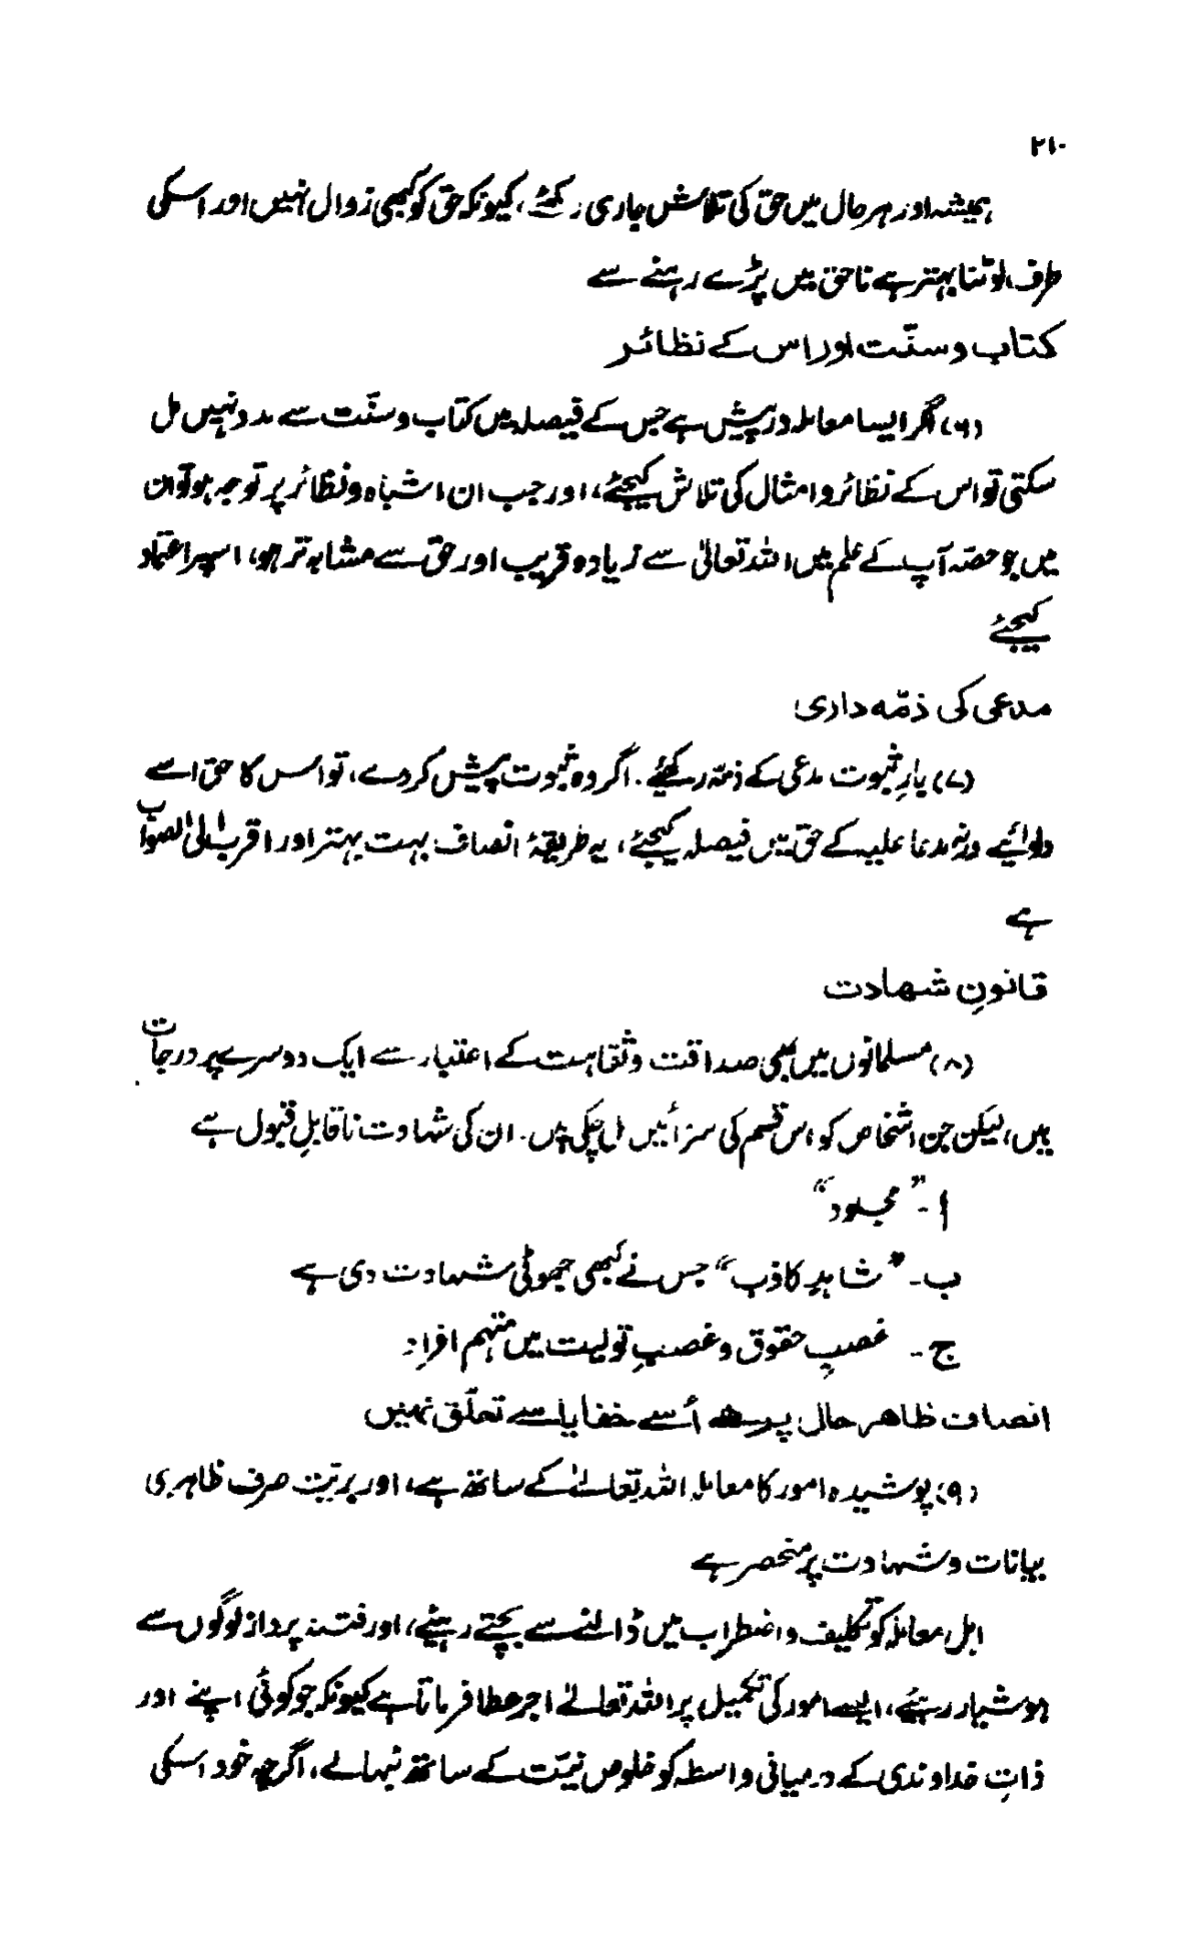 ۲۱۰
ہمیشہ اور ہر حال میں حق کی تلاش جاری رکھئے، کیونکہ حق کو کبھی زوال نہیں اور اسکی
طرف لوٹنا بہتر ہے ناحق میں پڑے رہنے سے
کتاب و سنّت اور اس کے نظائر
(۶) اگر ایسا معاملہ درپیش ہے جس کے فیصلہ میں کتاب و سنّت سے مدد نہیں مل
سکتی تو اس کے نظائر و امثال کی تلاش کیجئے، اور جب ان اشباہ و نظائر پر توجہ ہو تو ان
میں جو حصّہ آپ کے علم میں اللہ تعالیٰ سے زیادہ قریب اور حق سے مشابہ تر ہو، اسپر اعتماد
کیجئے
مدعی کی ذمّہ داری
(۷) بارِ ثبوت مدعی کے ذمّہ رکھیے. اگر وہ ثبوت پیش کر دے، تو اس کا حق اسے
دلوائیے ورنہ مدعا علیہ کے حق میں فیصلہ کیجئے، یہ طریقۂ انصاف بہت بہتر اور اقرب الی الصواب
ہے
قانونِ شہادت
(۸) مسلمانوں میں بھی صداقت و ثقاہت کے اعتبار سے ایک دوسرے پر درجات
ہیں، لیکن جن اشخاص کو اس قسم کی سزائیں مل چکی ہیں. ان کی شہادت ناقابلِ قبول ہے
ا۔ ”مجلود“
ب۔ ”شاہدِ کاذب“ جس نے کبھی جھوٹی شہادت دی ہے
ج۔ غصبِ حقوق و غصبِ تولیت میں متہم افراد
انصاف ظاہر حال پر ہے اُسے خفایا سے تعلّق نہیں
(۹) پوشیدہ امور کا معاملہ اللہ تعالےٰ کے ساتھ ہے، اور بریّت صرف ظاہری
بیانات و شہادت پر منحصر ہے
اہل معاملہ کو تکلیف و اضطراب میں ڈالنے سے بچتے رہیئے، اور فتنہ پرداز لوگوں سے
ہوشیار رہیئے، ایسے امور کی تکمیل پر اللہ تعالےٰ اجر عطا فرماتا ہے کیونکہ جو کوئی اپنے اور
ذاتِ خداوندی کے درمیانی واسطہ کو خلوص نیّت کے ساتھ نبھالے، اگرچہ خود اسکی